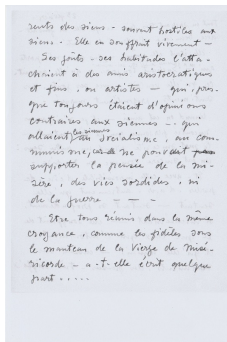 rents des siens - souvent hostiles aux
siens - Elle en souffrait vivement -
Ses goûts - ses habitudes l'atta-
chaient à des amis aristocratiques
et fins, ou artistes - qui, pres-
que toujours étaient d'opinions
contraires aux siennes - qui
allaient au socialisme, au com-
les siennes
munisme, ne pouvant
supporter la pensée de la mi-
sère, des vies sordides, ni
de la guerre - - -
Etre tous réunis dans la même
croyance, comme les fidèles sous
le manteau de la Vierge de Misé-
ricorde - a-t-elle écrit quelque
part.....